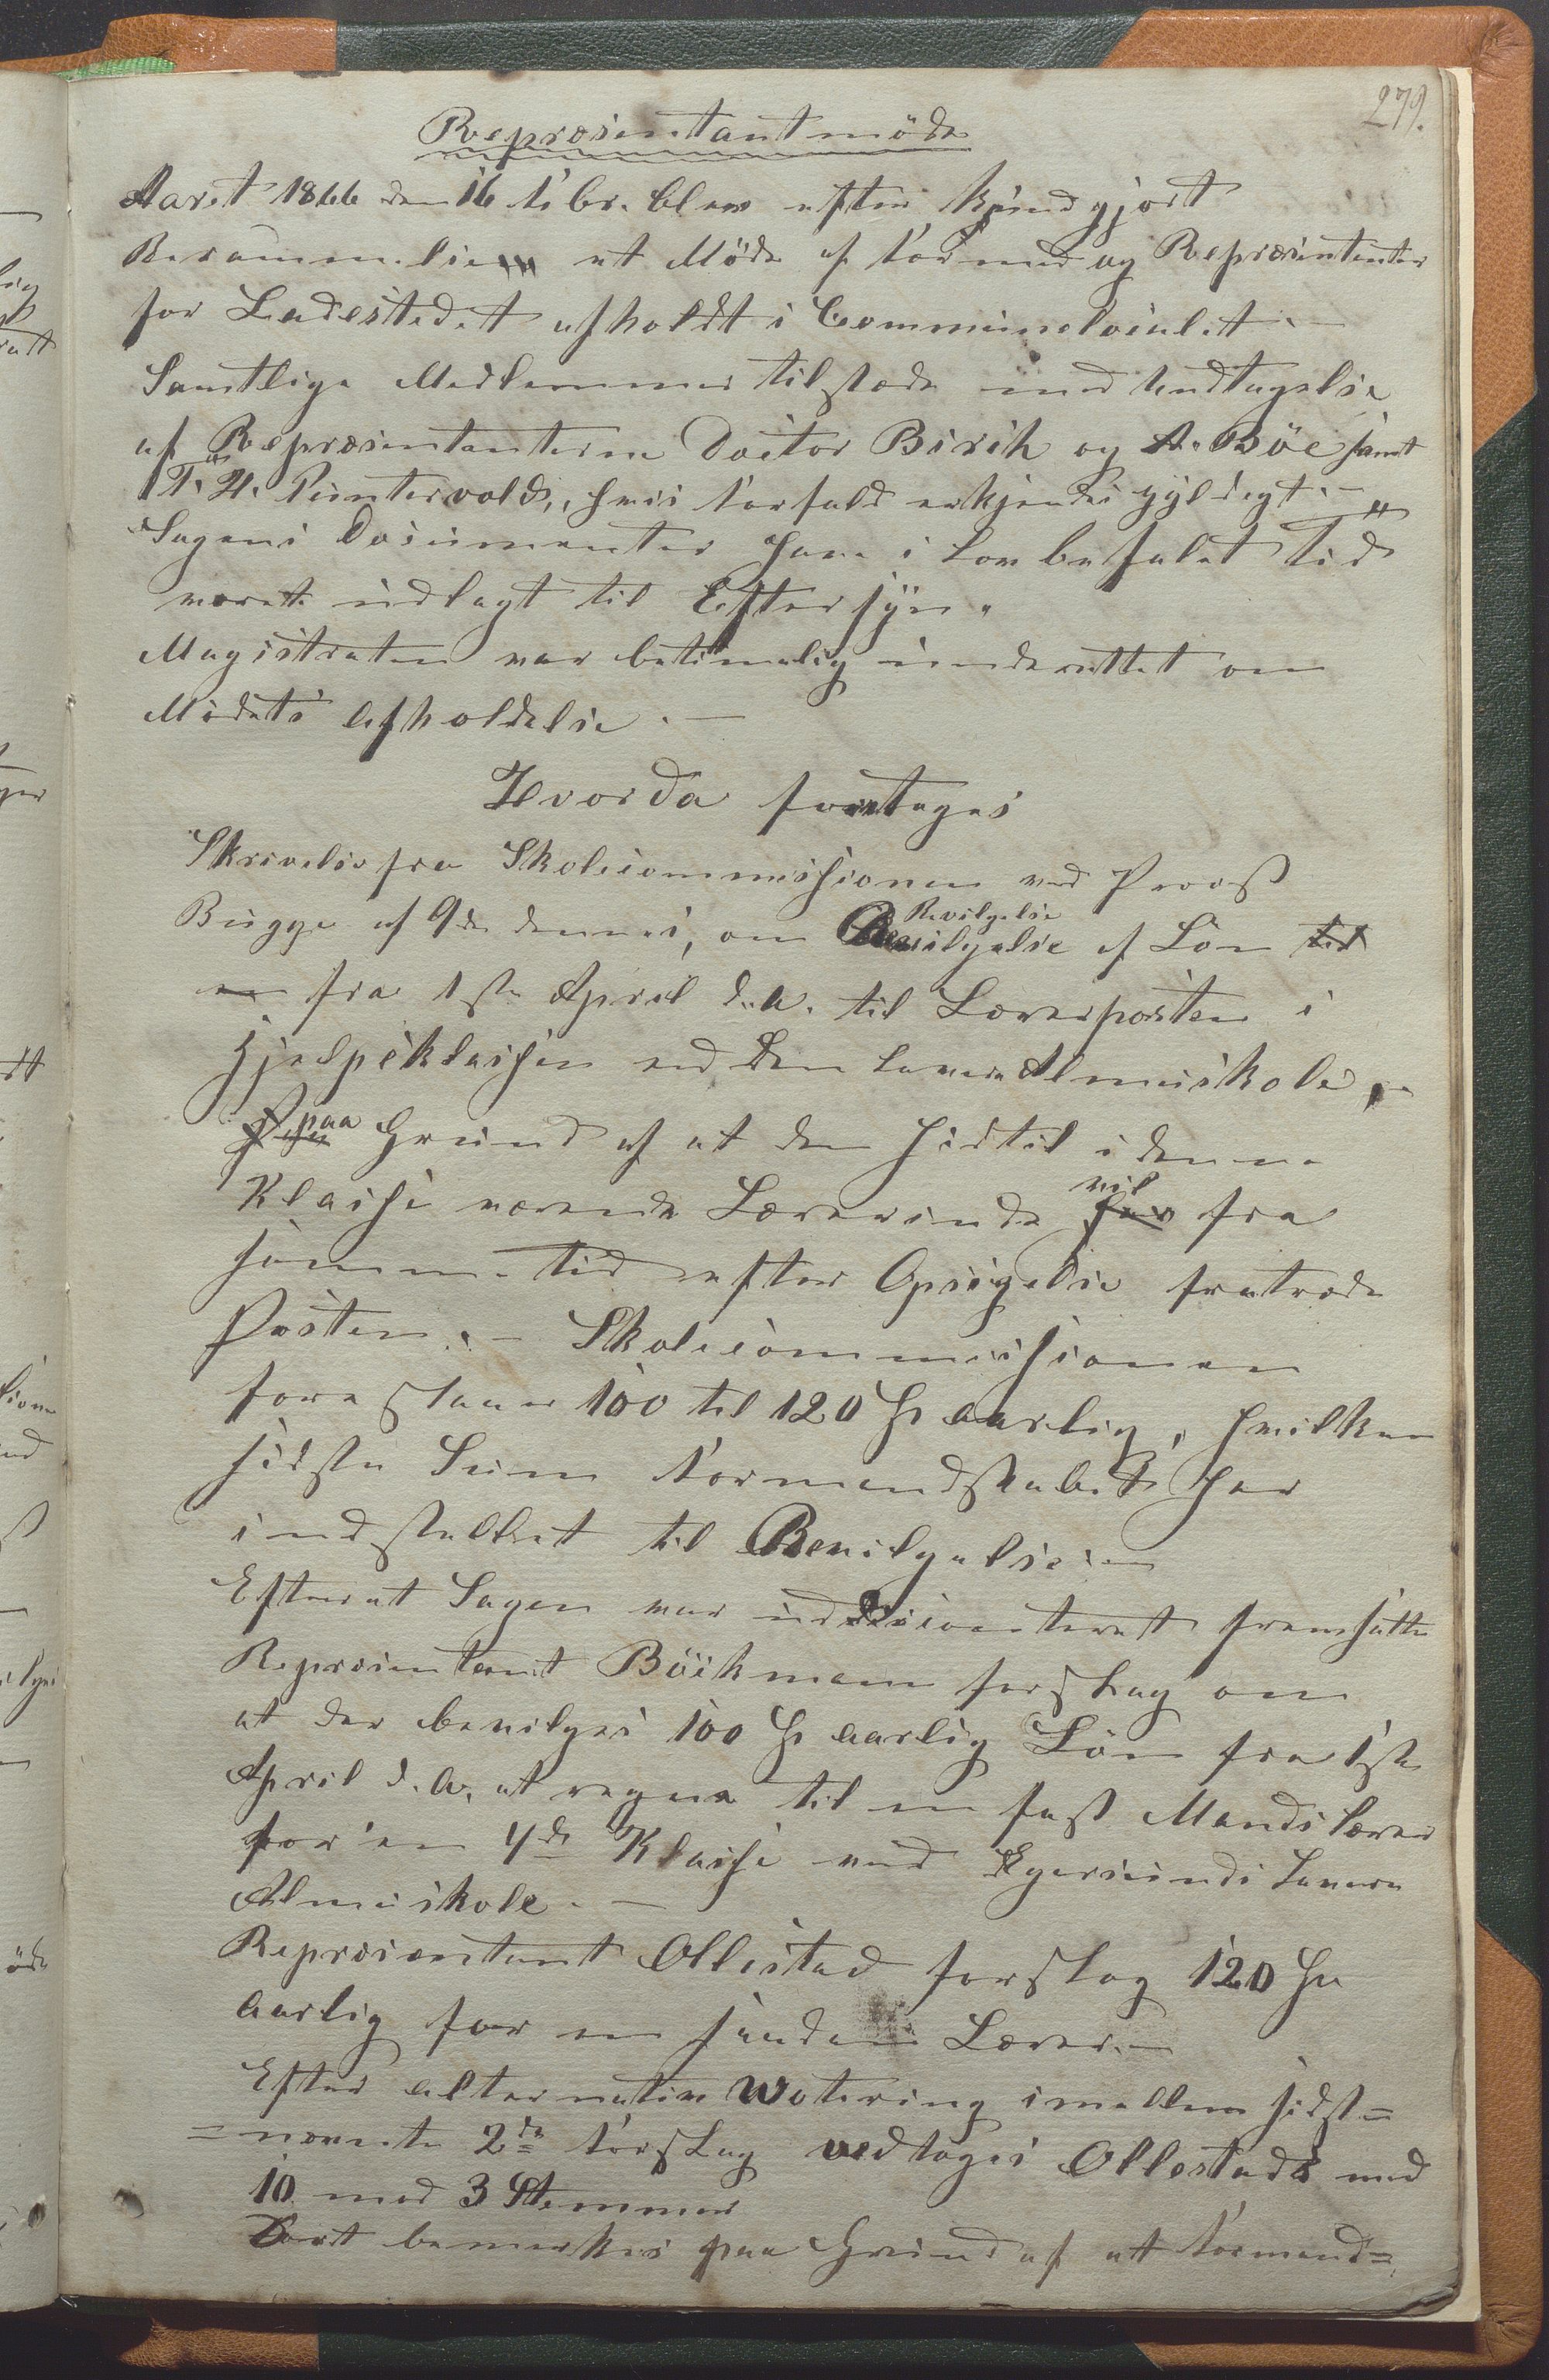 279.
Repræsentantmöde
Aaret 1866 den 16 febr. blev efter kundgjort
Berammelse et Möde af Formænd og Repræsentanter
for Ladestedet afholdt i Communelocalet. –
Samtlige Medlemmer tilstæde med Undtagelse
af Repræsentanterne Doctor Birch og A. Böe samt
T. H. Puntervold, hvis Forfald erkjendes gyldigt. –
Sagens Documenter have i Lovbefalet Tid
været udlagt til Eftersyn.
Magistraten var betimelig underrettet om
Mödets Afholdelse. –
Hvorda foretoges
Skrivelse fra Skolecommissionen ved Provst
Bugge af 9de dennes, om Bevilgelse Bevilgelse af Lön til
en fra 1ste April d.A. til Lærerposten i
Hjelpeklassen ved den lavere Almuskole, –
paa Grund af at den hidtil i denne
Klasse værende Lærerinde har vil fra
samme Tid efter Opsigelse fratræde
Posten. – Skolecommissionen
foreslaaer 100 til 120 Sp aarlig, hvilken
sidste Sum Formandskabet har
indstillet til Bevilgelse. –
Efterat Sagen var uddiscouteret fremsatte
Repræsentant Böckmann forslag om
at der bevilges 100 Sp aarlig Lön fra 1ste
April d.A. at regne til en fast Mandslærer
for en 4de Klasse ved Egersunds lavere
Almuskole. –
Repræsentant Ollestad forslog 120 Sp
aarlig for en saadan Lærer. –
Efter alternativ Wotering imellem sidst=
=nævnte 2de Forslag vedtoges Ollestads med
10 mod 3 Stemmer
Bort bemærkes paa Grund af at Formand=